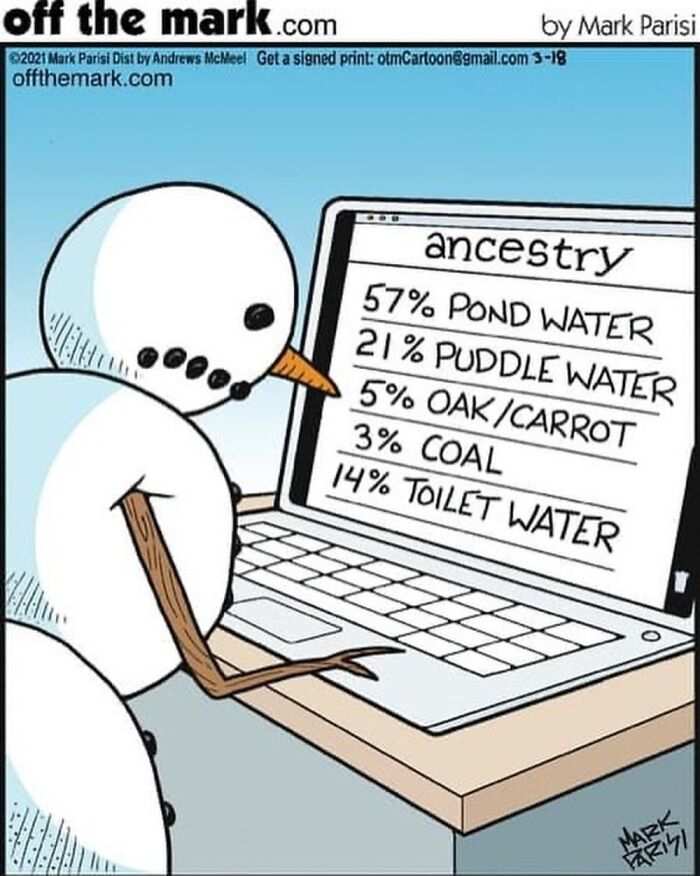 off the mark.com by Mark Parisi
©2021 Mark Parisi Dist by Andrews McMeel Get a signed print: otmCartoon@gmail.com 3-18
offthemark.com
ancestry
57% POND WATER
21% PUDDLE WATER
5% OAK/CARROT
3% COAL
14% TOILET WATER
MARK
PARISI